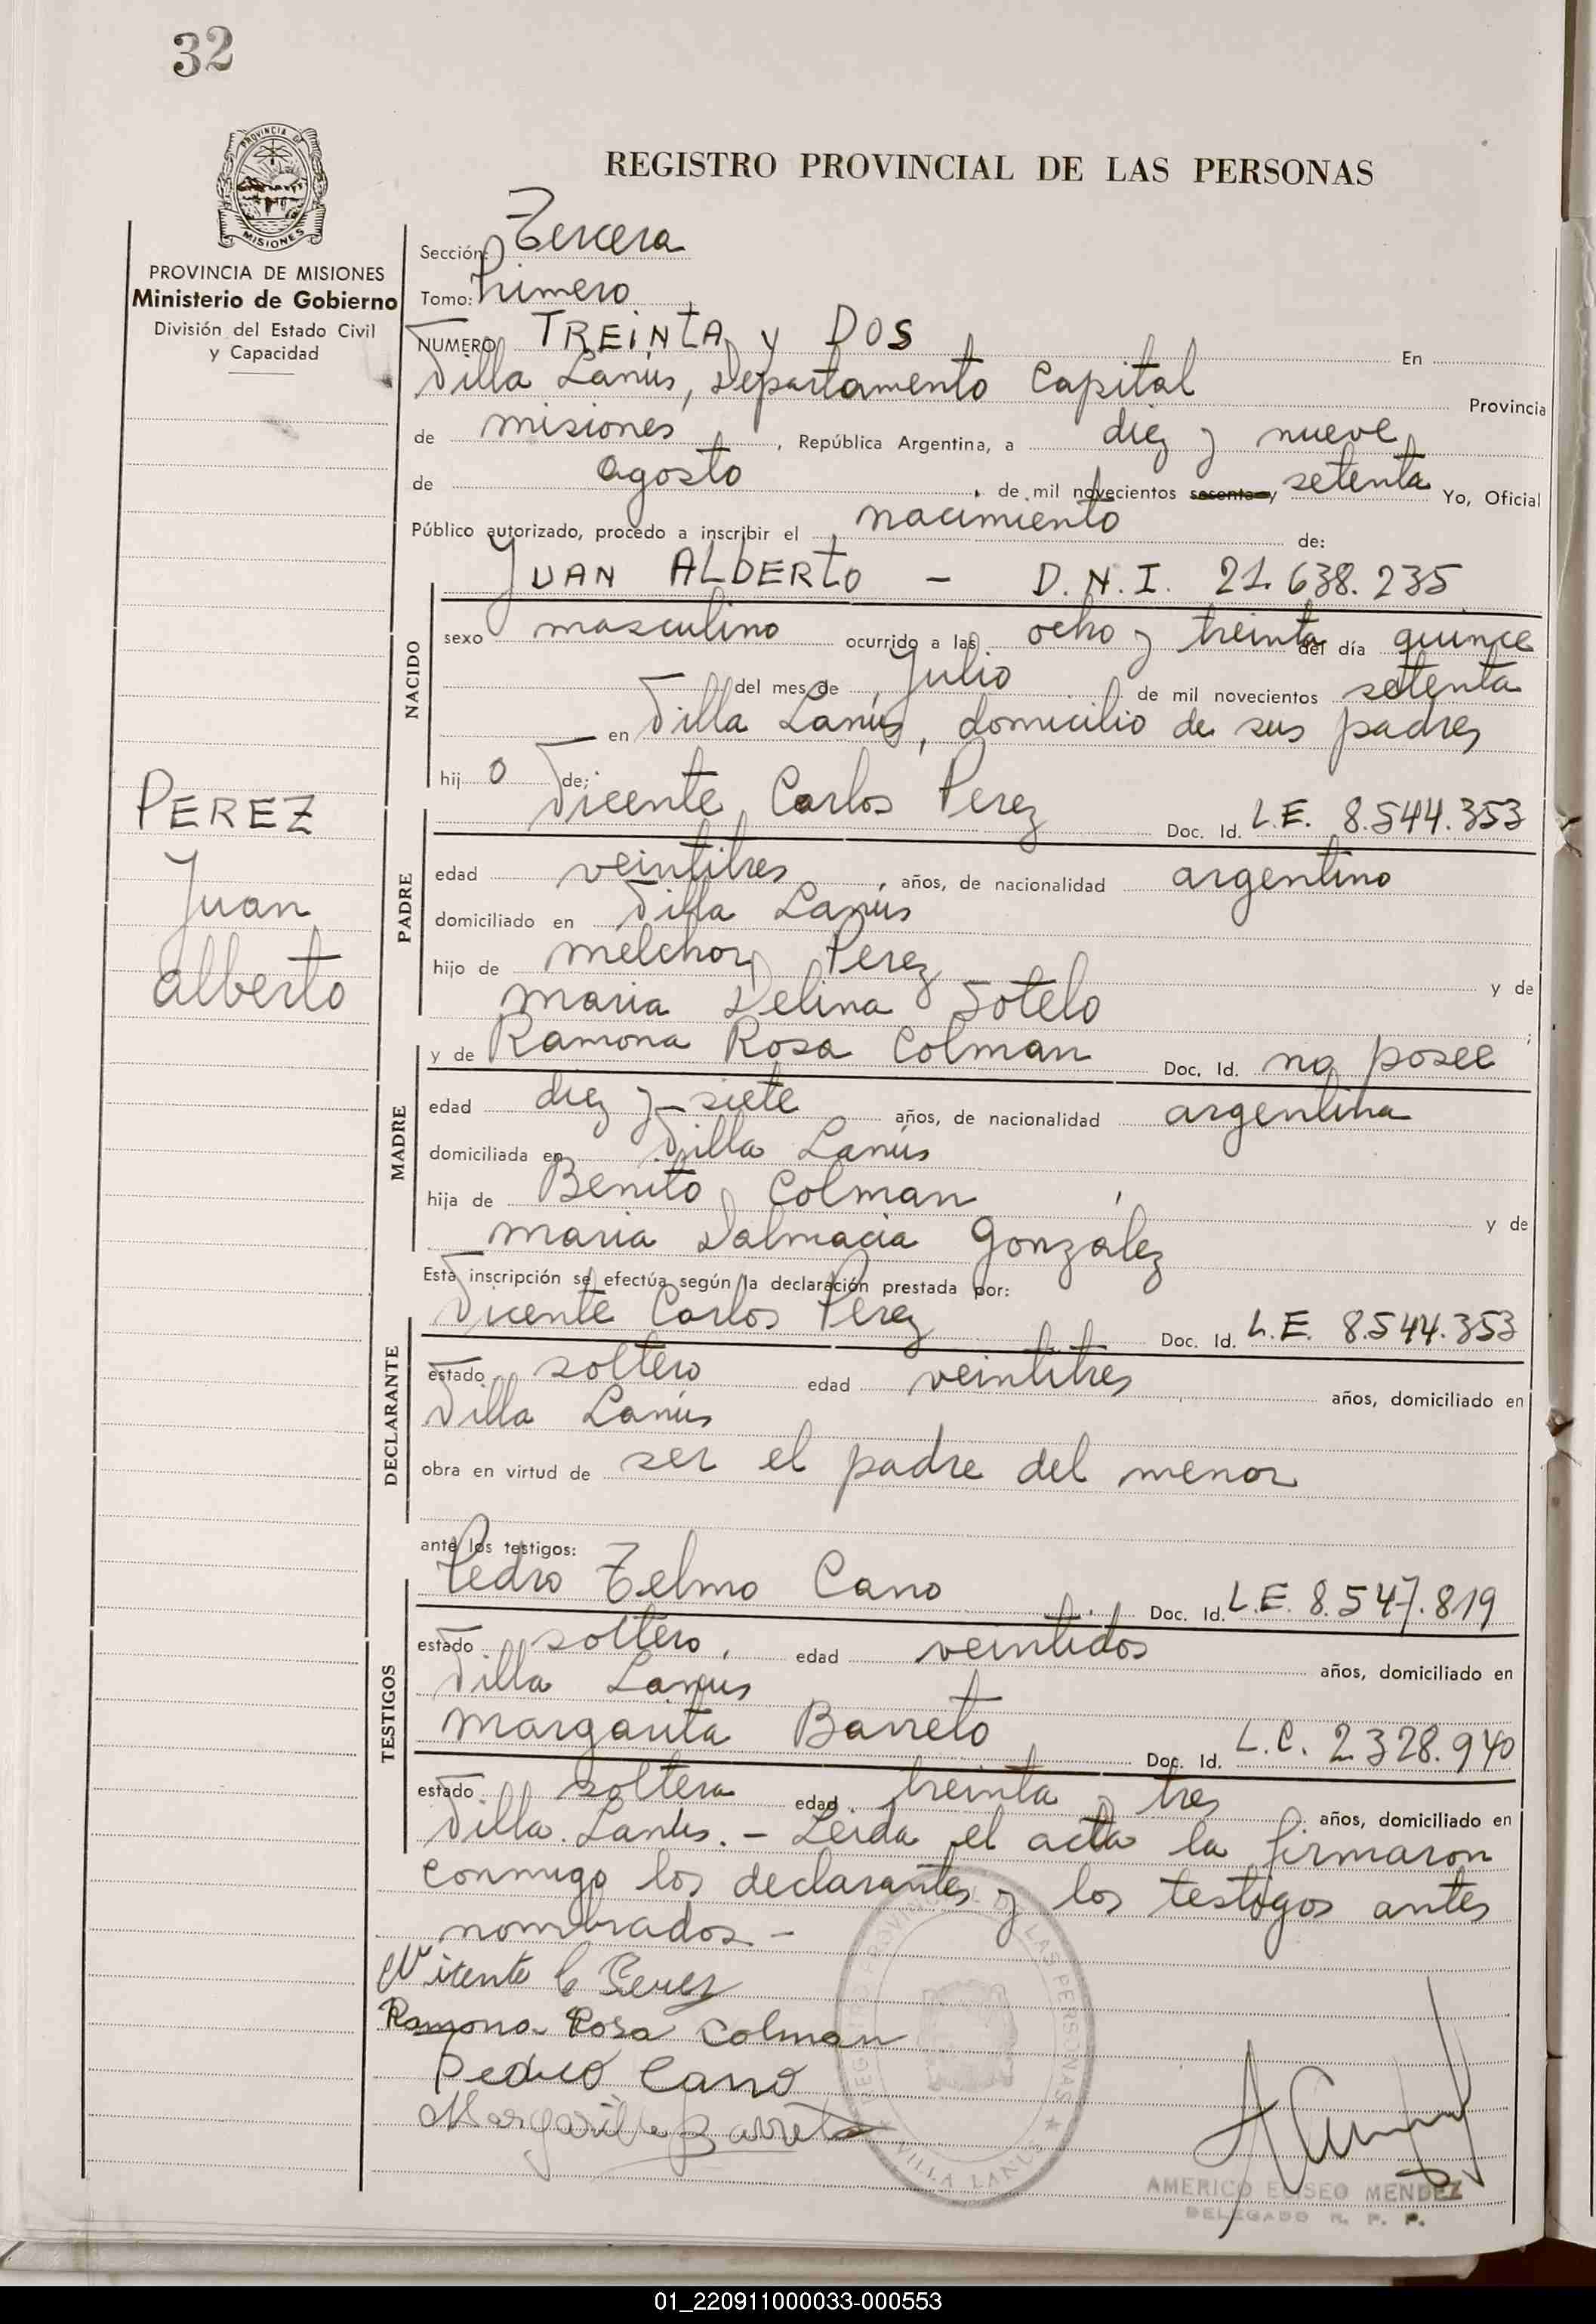 32
PROVINCIA DE
MISIONES
REGISTRO PROVINCIAL DE LAS PERSONAS
PROVINCIA DE MISIONES
Ministerio de Gobierno
División del Estado Civil
y Capacidad
PEREZ
Juan
Alberto
Sección: Tercera
Tomo: Primero
NUMERO TREINTA y DOS En
Villa Lanús, Departamento Capital Provincia
de misiones, República Argentina, a diez y nueve
de agosto, de mil novecientos sesenta y setenta Yo, Oficial
Público autorizado, procedo a inscribir el nacimiento de:
JUAN ALBERTO - D.N.I. 21.638.235
NACIDO
sexo masculino ocurrido a las ocho y treinta del día quince
del mes de Julio de mil novecientos setenta
en Villa Lanús, domicilio de sus padres
hij o de:
PADRE
Vicente Carlos Perez Doc. Id. L.E. 8.544.353
edad veintitres años, de nacionalidad argentino
domiciliado en Villa Lanús
hijo de melchor Perez y de
maria Delina Sotelo
MADRE
y de Ramona Rosa Colman Doc. Id. no posee
edad diez y siete años, de nacionalidad argentina
domiciliada en Villa Lanús
hija de Benito Colman y de
maria Dalmacia González
Esta inscripción se efectúa según la declaración prestada por:
DECLARANTE
Vicente Carlos Perez Doc. Id. L.E. 8.544.353
estado soltero edad veintitres años, domiciliado en
Villa Lanús
obra en virtud de ser el padre del menor
ante los testigos:
TESTIGOS
Pedro Telmo Cano Doc. Id. L.E. 8.547.819
estado soltero, edad veintidos años, domiciliado en
Villa Lanús
margarita Barreto Doc. Id. L.C. 2.328.940
estado soltera edad treinta y tres años, domiciliado en
Villa Lanús. - Leida el acta la firmaron
conmigo los declarantes y los testigos antes
nombrados. -
Vicente C Perez
Ramona Rosa Colman
Pedro Cano
Margarita Barreto
REGISTRO PROVINCIAL DE LAS PERSONAS
VILLA LANUS
AMERICO ELISEO MENDEZ
DELEGADO R. P. P.
01_220911000033-000553